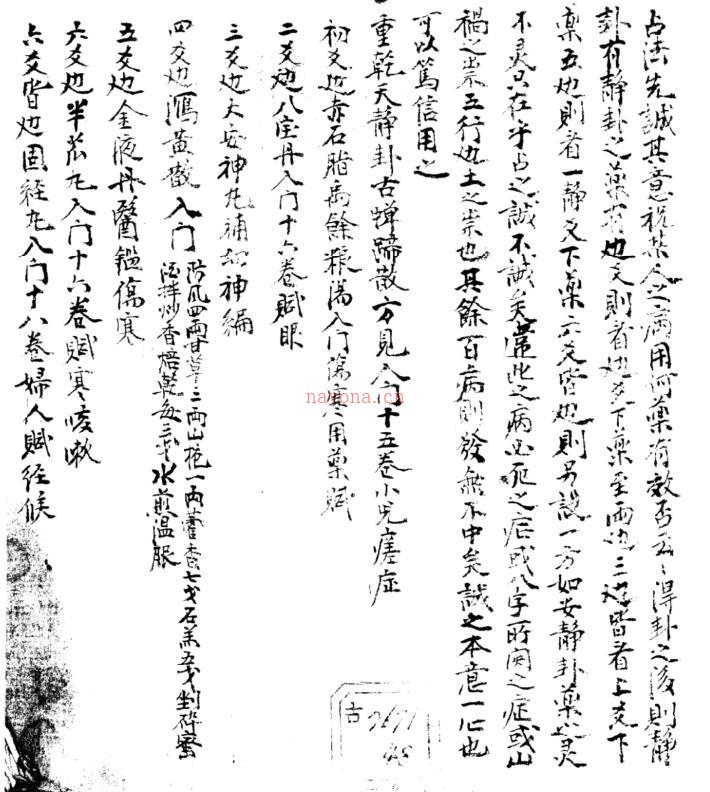 占法先誠其意祝某人之病用何藥有效否云云得卦之後則静
卦有静卦之藥有动爻則看动爻下藥至兩动三动皆看上爻下
藥五动則看一静爻下藥六爻皆动則另設一方如安静卦藥灵
不灵只在乎占之誠不誠矣當此之病必死之症或八字所関之症或山
禍之祟五行动土之祟也其餘百病則發無不中矣誠之本意一心也
可以篤信用之
重乾天静卦古蝉蹄散方見入门十五卷小児瘧症
初爻动赤石脂禹餘粮湯入门傷寒用藥賦
二爻动八宝丹入门十六卷賦眼
三爻动大安神丸補 神編
四爻动瀉黃散入门防风四兩甘草二兩山梔一兩藿香七戈石羔五戈剉碎蜜
酒拌炒香焙乾每三戈水煎温服
五爻动金液丹醫鑑傷寒
六爻动半苽丸入门十六卷賦寒咳嗽
六爻皆动固経丸入门十八卷婦人賦経候
古
2671
48
nayona.cn